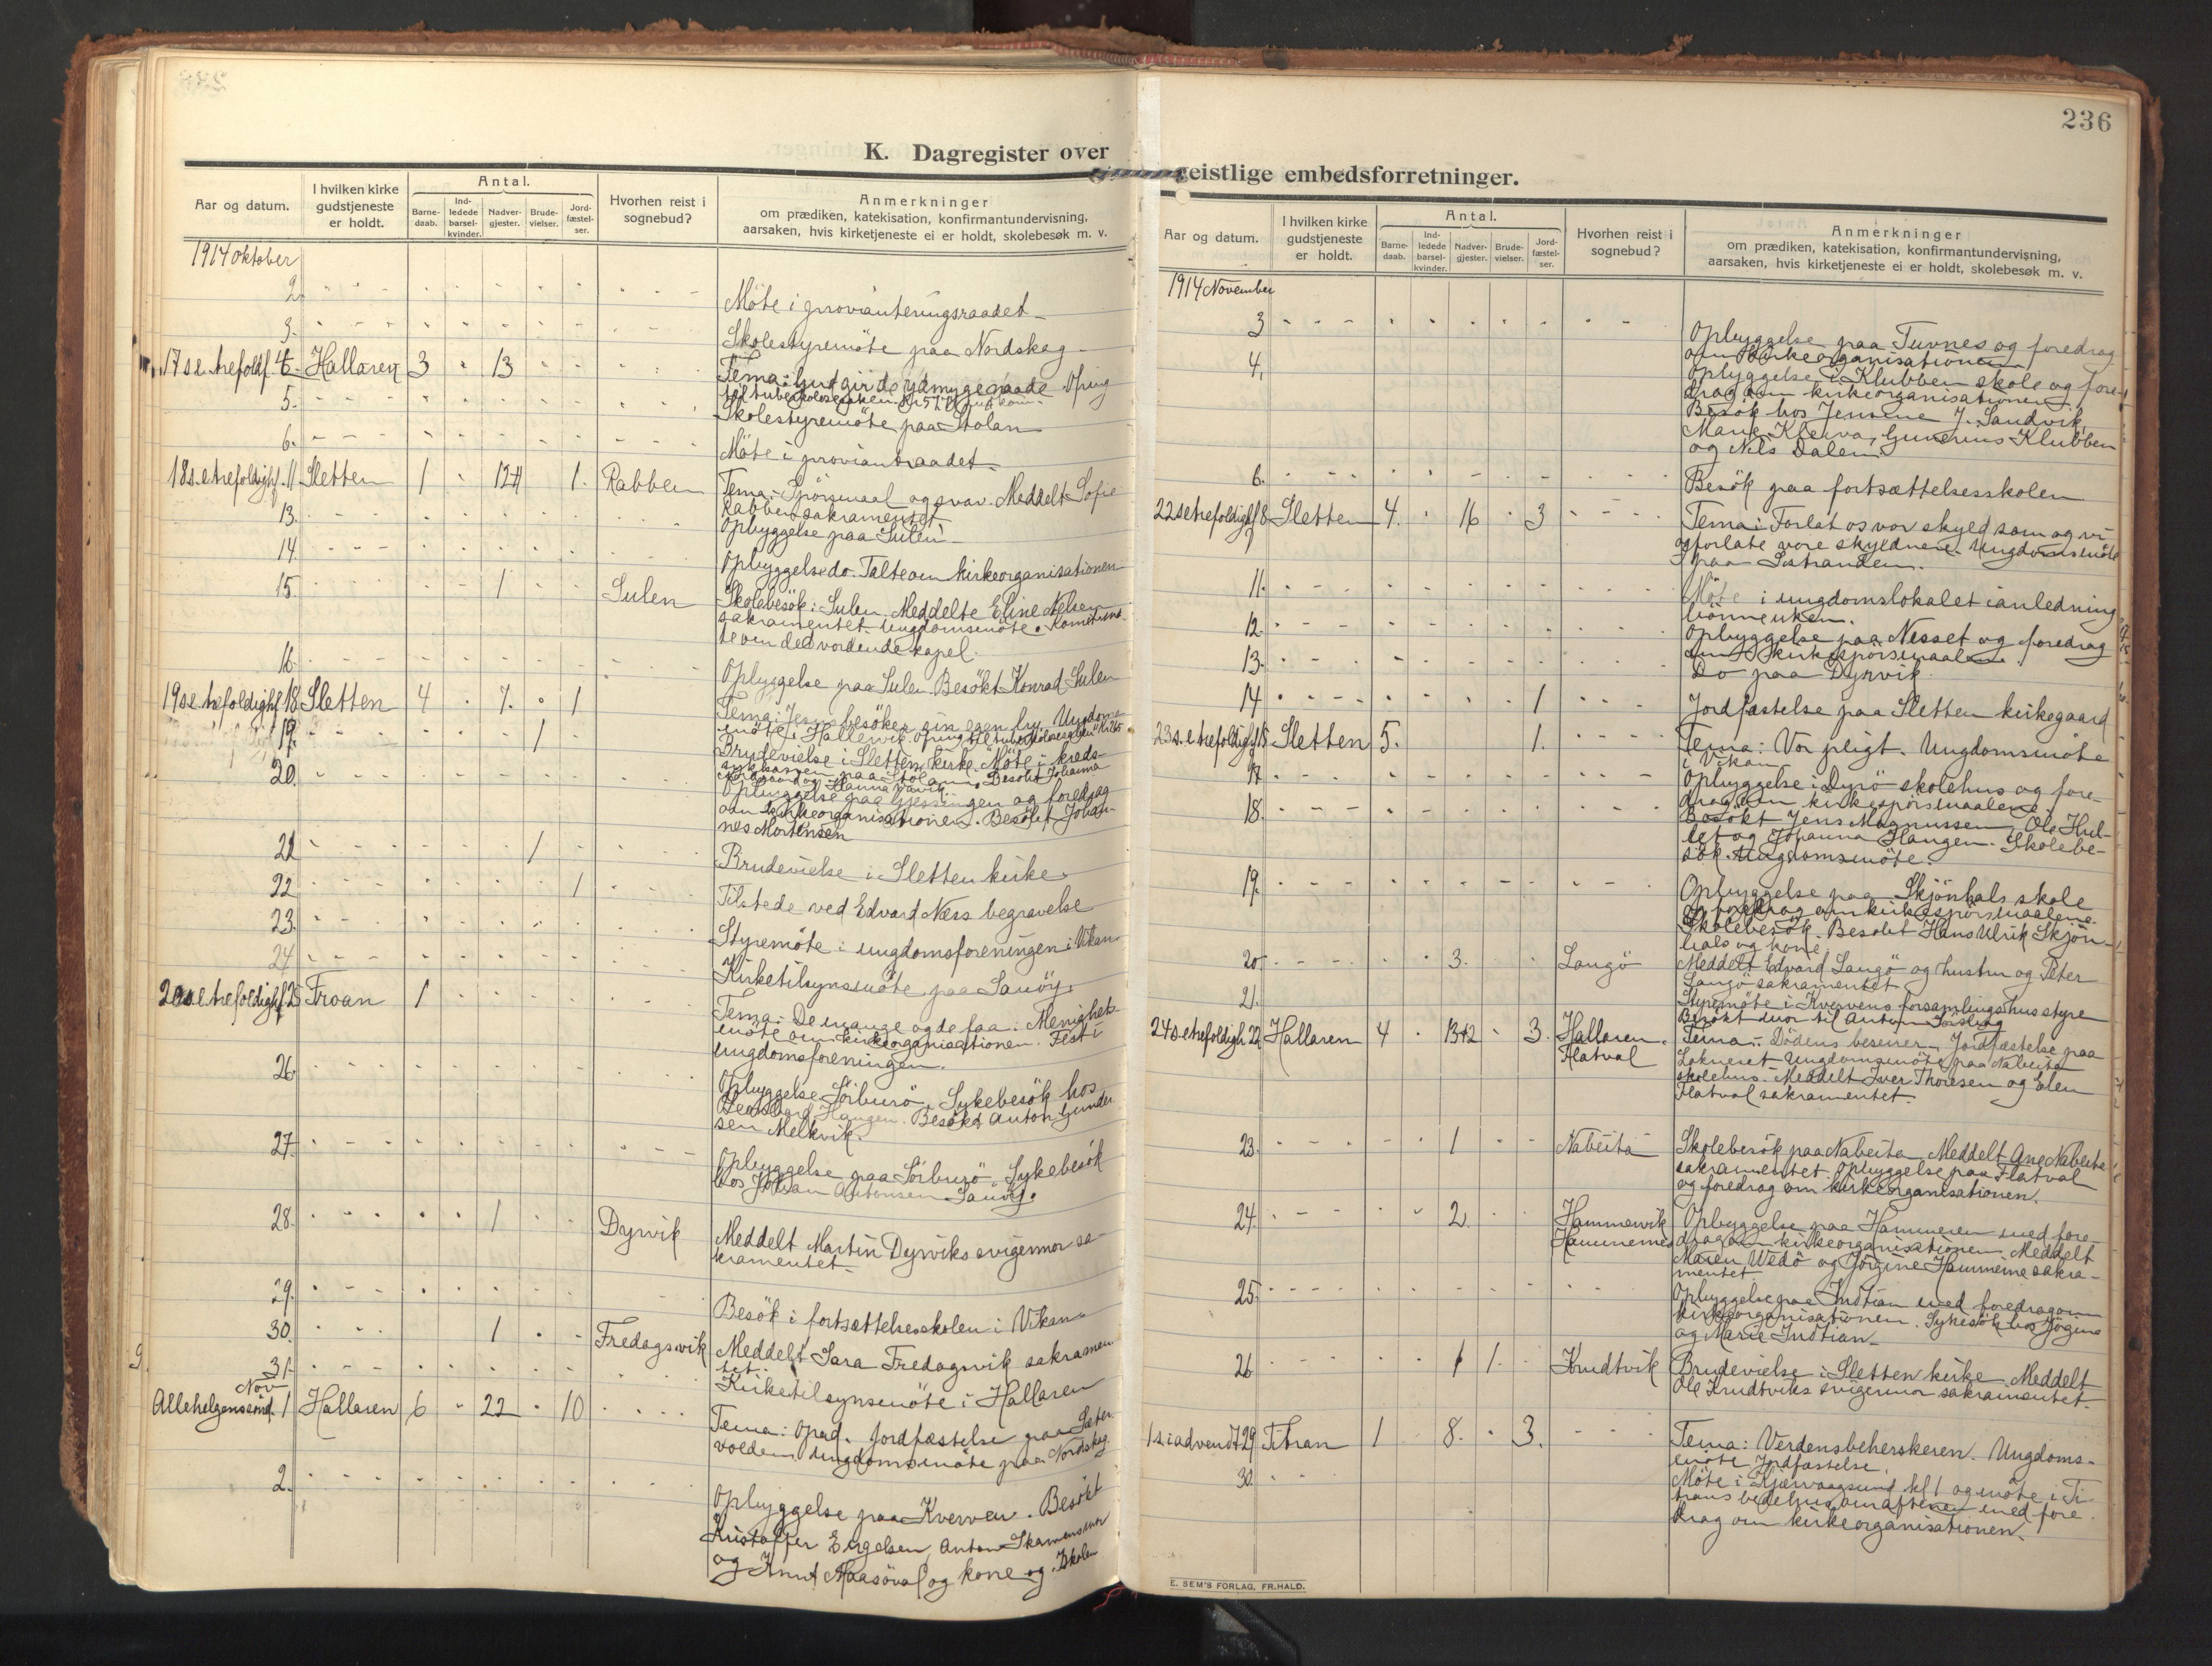 236
K. Dagregister over
geistlige embedsforretninger.
Aar og datum.
I hvilken kirke gudstjeneste er holdt.
Antal.
Barnedaab.
Indledede barselkvinder.
Nadvergjester.
Brudevielser.
Jordfæstelser.
Hvorhen reist i sognebud?
Anmerkninger
om prædiken, katekisation, konfirmantundervisning,
aarsaken, hvis kirketjeneste ei er holdt, skolebesøk m. v.
1914 oktober
2. Möte i provianteringsraadet
3. Skolestyremöte paa Nordskag
17 s. e. trefoldf. 4. Hallaren 3 13 Tema: Gud gir de ydmyge naade Ofring
5. Skolestyremöte paa Stolan
6. Möte i proviantraadet
18 s. e. trefoldighf. 11 Sletten 1 1 Rabben Tema: Spörsmaal og svar. Meddelt Sofie
Rabben sakramentet
13. Opbyggelse paa Sulen
14. Opbyggelse do. Talte om kirkeorganisationen
15. 1 Sulen Skolebesök i Sulen. Meddelte Eline Nelsen
sakramentet. Ungdomsmöte.
te om det vordende kapel.
16. Opbyggelse paa Sulen. Besökt Konrad Sulen
19 s. e. trefoldighf. 18. Sletten 4 7. 1 Tema: Jesus besöker sin egen by. Ungdoms
möte i Hallervik
19. 1 Brudevielse i Sletten kirke. Möte i kreds-
sykekassen paa Stolan. Besökt Johanna
20. Opbyggelse paa Gjessingen og foredrag
om kirkeorganisationen. Besökt Johan-
nes Mortensen
21 1 Brudevielse i Sletten kirke
22 1 Tilstede ved Edvard Næss begravelse
23. Styremöte i ungdomsforeningen i Vikan
24 Kirketilsynsmöte paa Sauöy.
20 s. e. trefoldighf. 25 Froan 1 Tema: De mange og de faa. Menighets
möte om kirkeorganisationen. Fest i
ungdomsforeningen.
26 Opbyggelse Sörburö. Sykebesök hos
Haugen. Besökt Anton Gunder
sen Melkvik.
27 Opbyggelse paa Sörburö. Sykebesök
hos Johan Antonsen Sauöy.
28. 1 Dyrvik Meddelt Martin Dyrviks svigermor sa-
kramentet
29. Besök i fortsættelsesskolen i Vikan
30. 1 Fredagsvik Meddelt Sara Fredagsvik sakramen
tet.
31. Kirketilsynsmöte i Hallaren
Nov
Allehelgensönd. 1 Hallaren 6 22 10 Tema: Opad. Jordfæstelse paa Sæter
volden. Ungdomsmöte paa Nordskag.
2. Opbyggelse paa Kverven. Besökt
Kristoffer Engelsen, Anton Skammens mor
og Knut Maasöval og kone og Skolen
Aar og datum.
I hvilken kirke gudstjeneste er holdt.
Antal.
Barnedaab.
Indledede barselkvinder.
Nadvergjester.
Brudevielser.
Jordfæstelser.
Hvorhen reist i sognebud?
Anmerkninger
om prædiken, katekisation, konfirmantundervisning,
aarsaken, hvis kirketjeneste ei er holdt, skolebesøk m. v.
1914 November
3 Opbyggelse paa Tuvnes og foredrag
om kirkeorganisationen
4. Opbyggelse i Klubben skole og fore-
drag om kirkeorganisationen.
Besök hos Jensine J. Sandvik,
Marie Kleiva, Gunerius Klubben
og Nils Dalen.
6. Besök paa fortsættelsesskolen
22 s e trefoldighf 8 Sletten 4. 16 3 Tema: Forlat os vor skyld som og vi
forlate vore skyldnere. Ungdomsmöte
paa Sistranden.
11. Möte i ungdomslokalet i anledning
bönneuken.
12. Opbyggelse paa Nesset og foredrag
om kirkespörsmaalene
13. Do paa Dyrvik
14 1 Jordfæstelse paa Sletten kirkegaard
23 s. e trefoldighf 15 Sletten 5. 1. Tema: Vor pligt. Ungdomsmöte
i Vikan
17 Opbyggelse i Dyrö skolehus og fore-
drag om kirkespörsmaalene.
18. Besökt Jens Magnussen, Ole Hul-
tet og Johanna Haugen. Skolebe-
sök. Ungdomsmöte.
19. Opbyggelse paa Skjönhals skole
og foredrag om kirkespörsmaalene.
Skolebesök. Besökt Hans Ulrik Skjön-
hals og kone
20. 3. Langö Meddelt Edvard Langö og hustru og Peter
Langö sakramentet
21. Styremöte i Kvervens forsamlingshus styre
Besökt mor til Anton
24 s. e trefoldigh. 22 Hallaren 4 13+2 3. Hallaren. Flatval Tema: Dödens beseirer. Jordfæstelse paa
Ungdomsmöte paa Nabeita
skolehus. Meddelt Iver Thoresen og Elen
Flatval sakramentet.
23. 1 Nabeita Skolebesök paa Nabeita. Meddelt Ane Nabeita
sakramentet. Opbyggelse paa Flatval
og foredrag om kirkeorganisationen.
24. 2. Hammervik Hammernes Opbyggelse paa Hammeren med fore-
drag om kirkeorganisationen. Meddelt
Maren Wedö og Jörgine Hammerne sakra-
mentet
25. Opbyggelse paa Inntian med foredrag om
kirkeorganisationen. Sykesök hos Jörgine
og Marie Inntian
26 1 1. Knudtvik Brudevielse i Sletten kirke. Meddelt
Ole Knudtviks svigermor sakramentet.
1 s. i advendt 29 Titran 1 8. 3. Tema: Verdensbeherskeren. Ungdoms-
möte. Jordfæstelse.
30. Möte i Kjærvaagsund kl 1 og möte i Ti-
trans bedehus om aftenen med fore-
drag om kirkeorganisationen.
E. SEM'S FORLAG, FR.HALD.